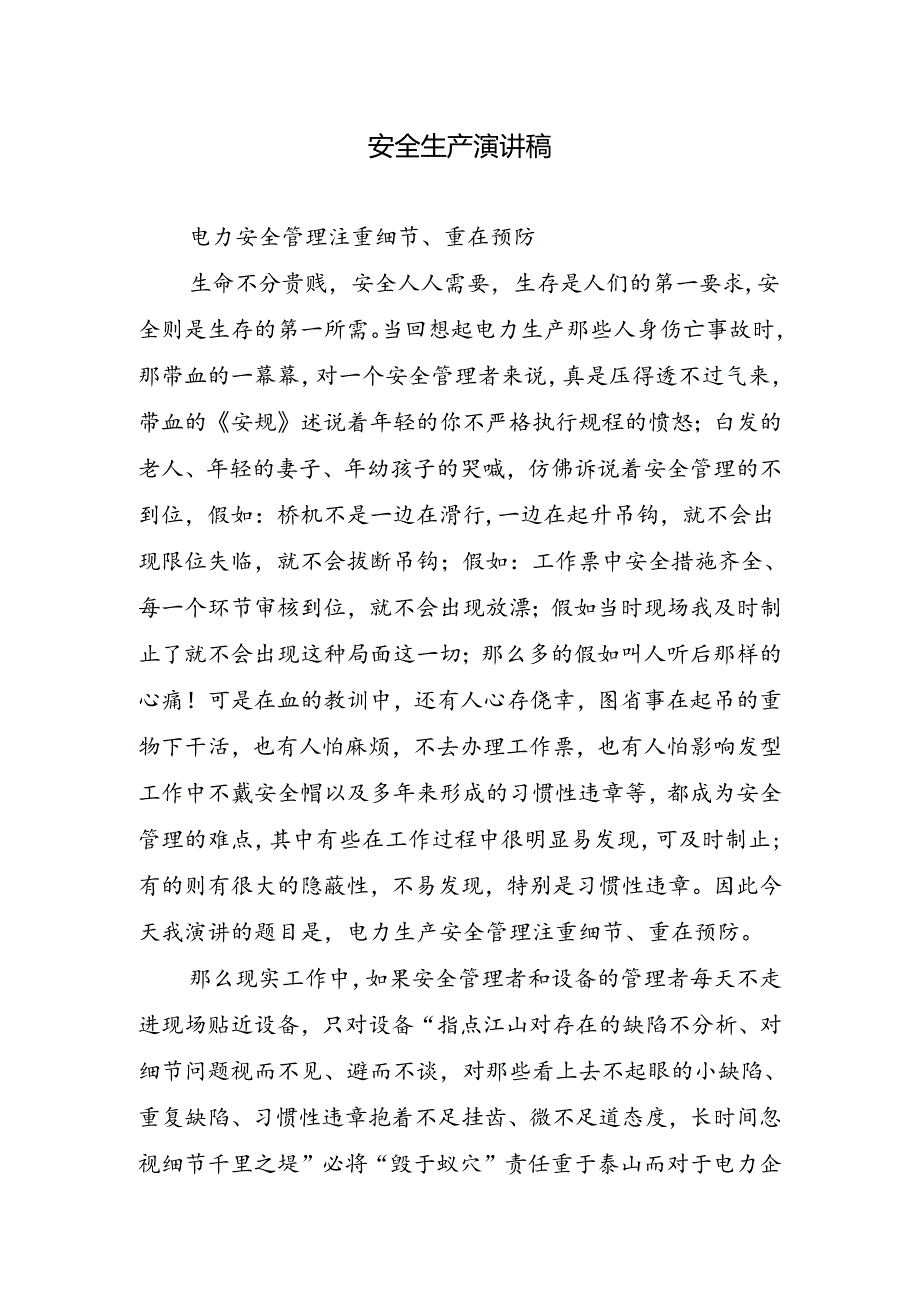 安全生产演讲稿
电力安全管理注重细节、重在预防
生命不分贵贱，安全人人需要，生存是人们的第一要求,安
全则是生存的第一所需。当回想起电力生产那些人身伤亡事故时，
那带血的一幕幕，对一个安全管理者来说，真是压得透不过气来，
带血的《安规》述说着年轻的你不严格执行规程的愤怒；白发的
老人、年轻的妻子、年幼孩子的哭喊，仿佛诉说着安全管理的不
到位，假如：桥机不是一边在滑行,一边在起升吊钩，就不会出
现限位失临，就不会拔断吊钩；假如：工作票中安全措施齐全、
每一个环节审核到位，就不会出现放漂；假如当时现场我及时制
止了就不会出现这种局面这一切；那么多的假如叫人听后那样的
心痛！可是在血的教训中，还有人心存侥幸，图省事在起吊的重
物下干活，也有人怕麻烦，不去办理工作票，也有人怕影响发型
工作中不戴安全帽以及多年来形成的习惯性违章等，都成为安全
管理的难点，其中有些在工作过程中很明显易发现，可及时制止；
有的则有很大的隐蔽性，不易发现，特别是习惯性违章。因此今
天我演讲的题目是，电力生产安全管理注重细节、重在预防。
那么现实工作中，如果安全管理者和设备的管理者每天不走
进现场贴近设备，只对设备“指点江山对存在的缺陷不分析、对
细节问题视而不见、避而不谈，对那些看上去不起眼的小缺陷、
重复缺陷、习惯性违章抱着不足挂齿、微不足道态度，长时间忽
视细节千里之堤”必将“毁于蚁穴”责任重于泰山而对于电力企